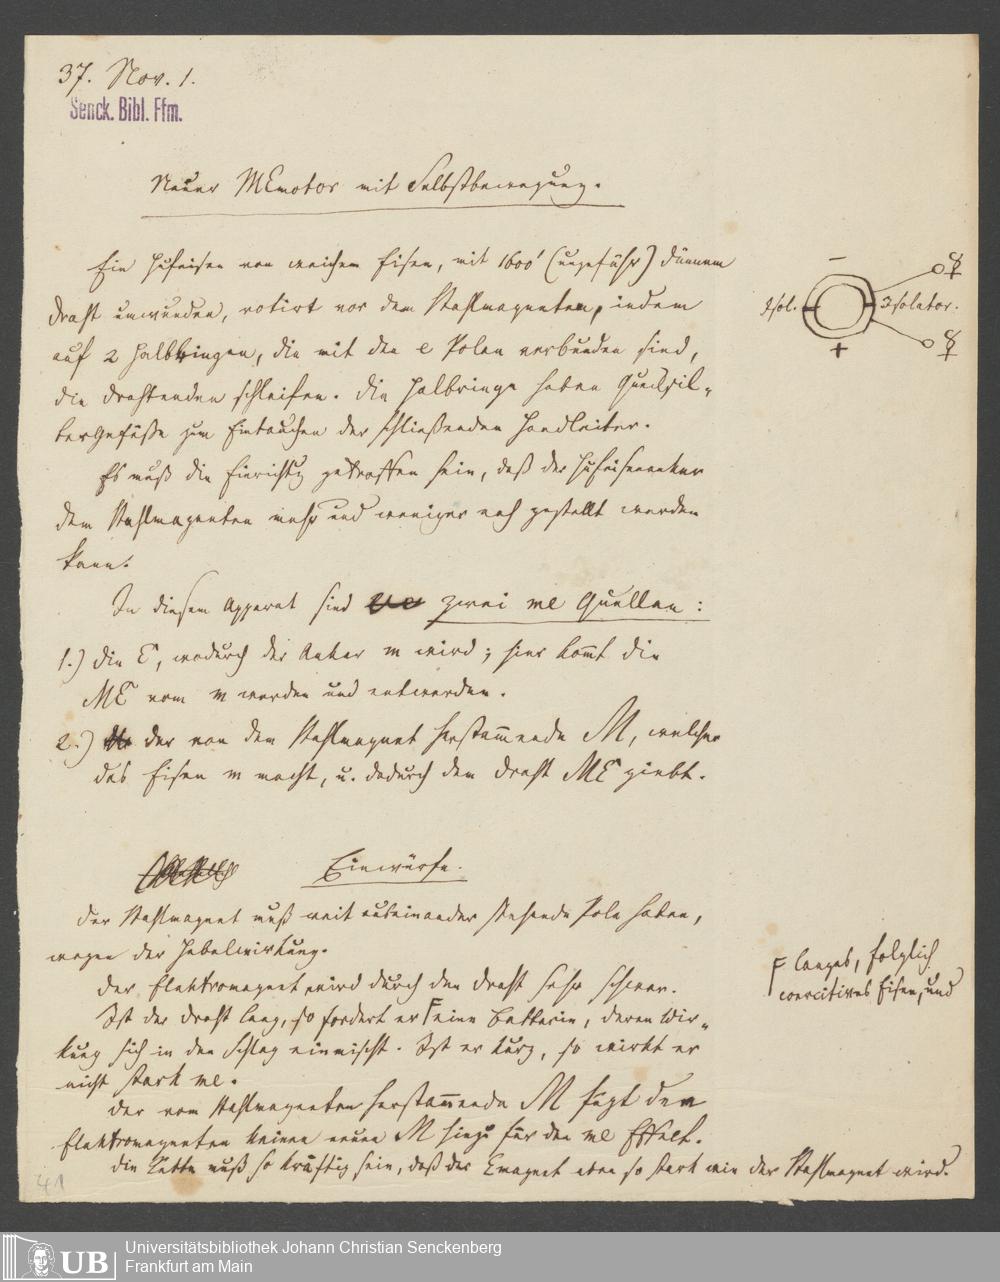 37. Nov. 1.
Senck. Bibl. Ffm.
Neuer MEmotor mit Selbstbewegung.
Ein Hufeisen von weichem Eisen, mit 1600' (ungefähr) dünnem
Draht umwunden, rotirt vor dem Stahlmagneten, indem
auf 2 Halbringen, die mit den e Polen verbunden sind,
die Drahtenden schleifen. Die Halbringe haben Quecksil-
bergefäße zum Eintauchen der schließenden Handleiter.
Es muß die Einrichtg getroffen sein, daß der Hufeisenanker
dem Stahlmagneten mehr und weniger nah gestellt werden
kann.
In diesem Apparat sind zwei me Quellen:
1.) die E, wodurch der Anker m wird; hier kommt die
ME vom m werden und entwerden.
2.) der von dem Stahlmagnet herstammende M, welcher
das Eisen m macht, u. dadurch dem Draht ME giebt.
Einwürfe.
Der Stahlmagnet muß weit auseinander stehende Pole haben,
wegen der Hebelwirkung.
Der Elektromagnet wird durch den Draht sehr schwer.
Ist der Draht lang, so fordert er Γ eine Batterie, deren Wir-
kung sich in den Schlag einmischt. Ist er kurz, so wirkt er
nicht stark me.
Der vom Stahlmagneten herstammende M fügt dem
Elektromagneten keinen neuen M hinzu für den me Effekt.
Die Kette muß so kräftig sein, daß der Emagnet eben so stark wie der Stahlmagnet wird.
−
Isol.
Isolator.
+
☿
☿
Γ langes, folglich
coercitives Eisen, und
41
UB
Universitätsbibliothek Johann Christian Senckenberg
Frankfurt am Main